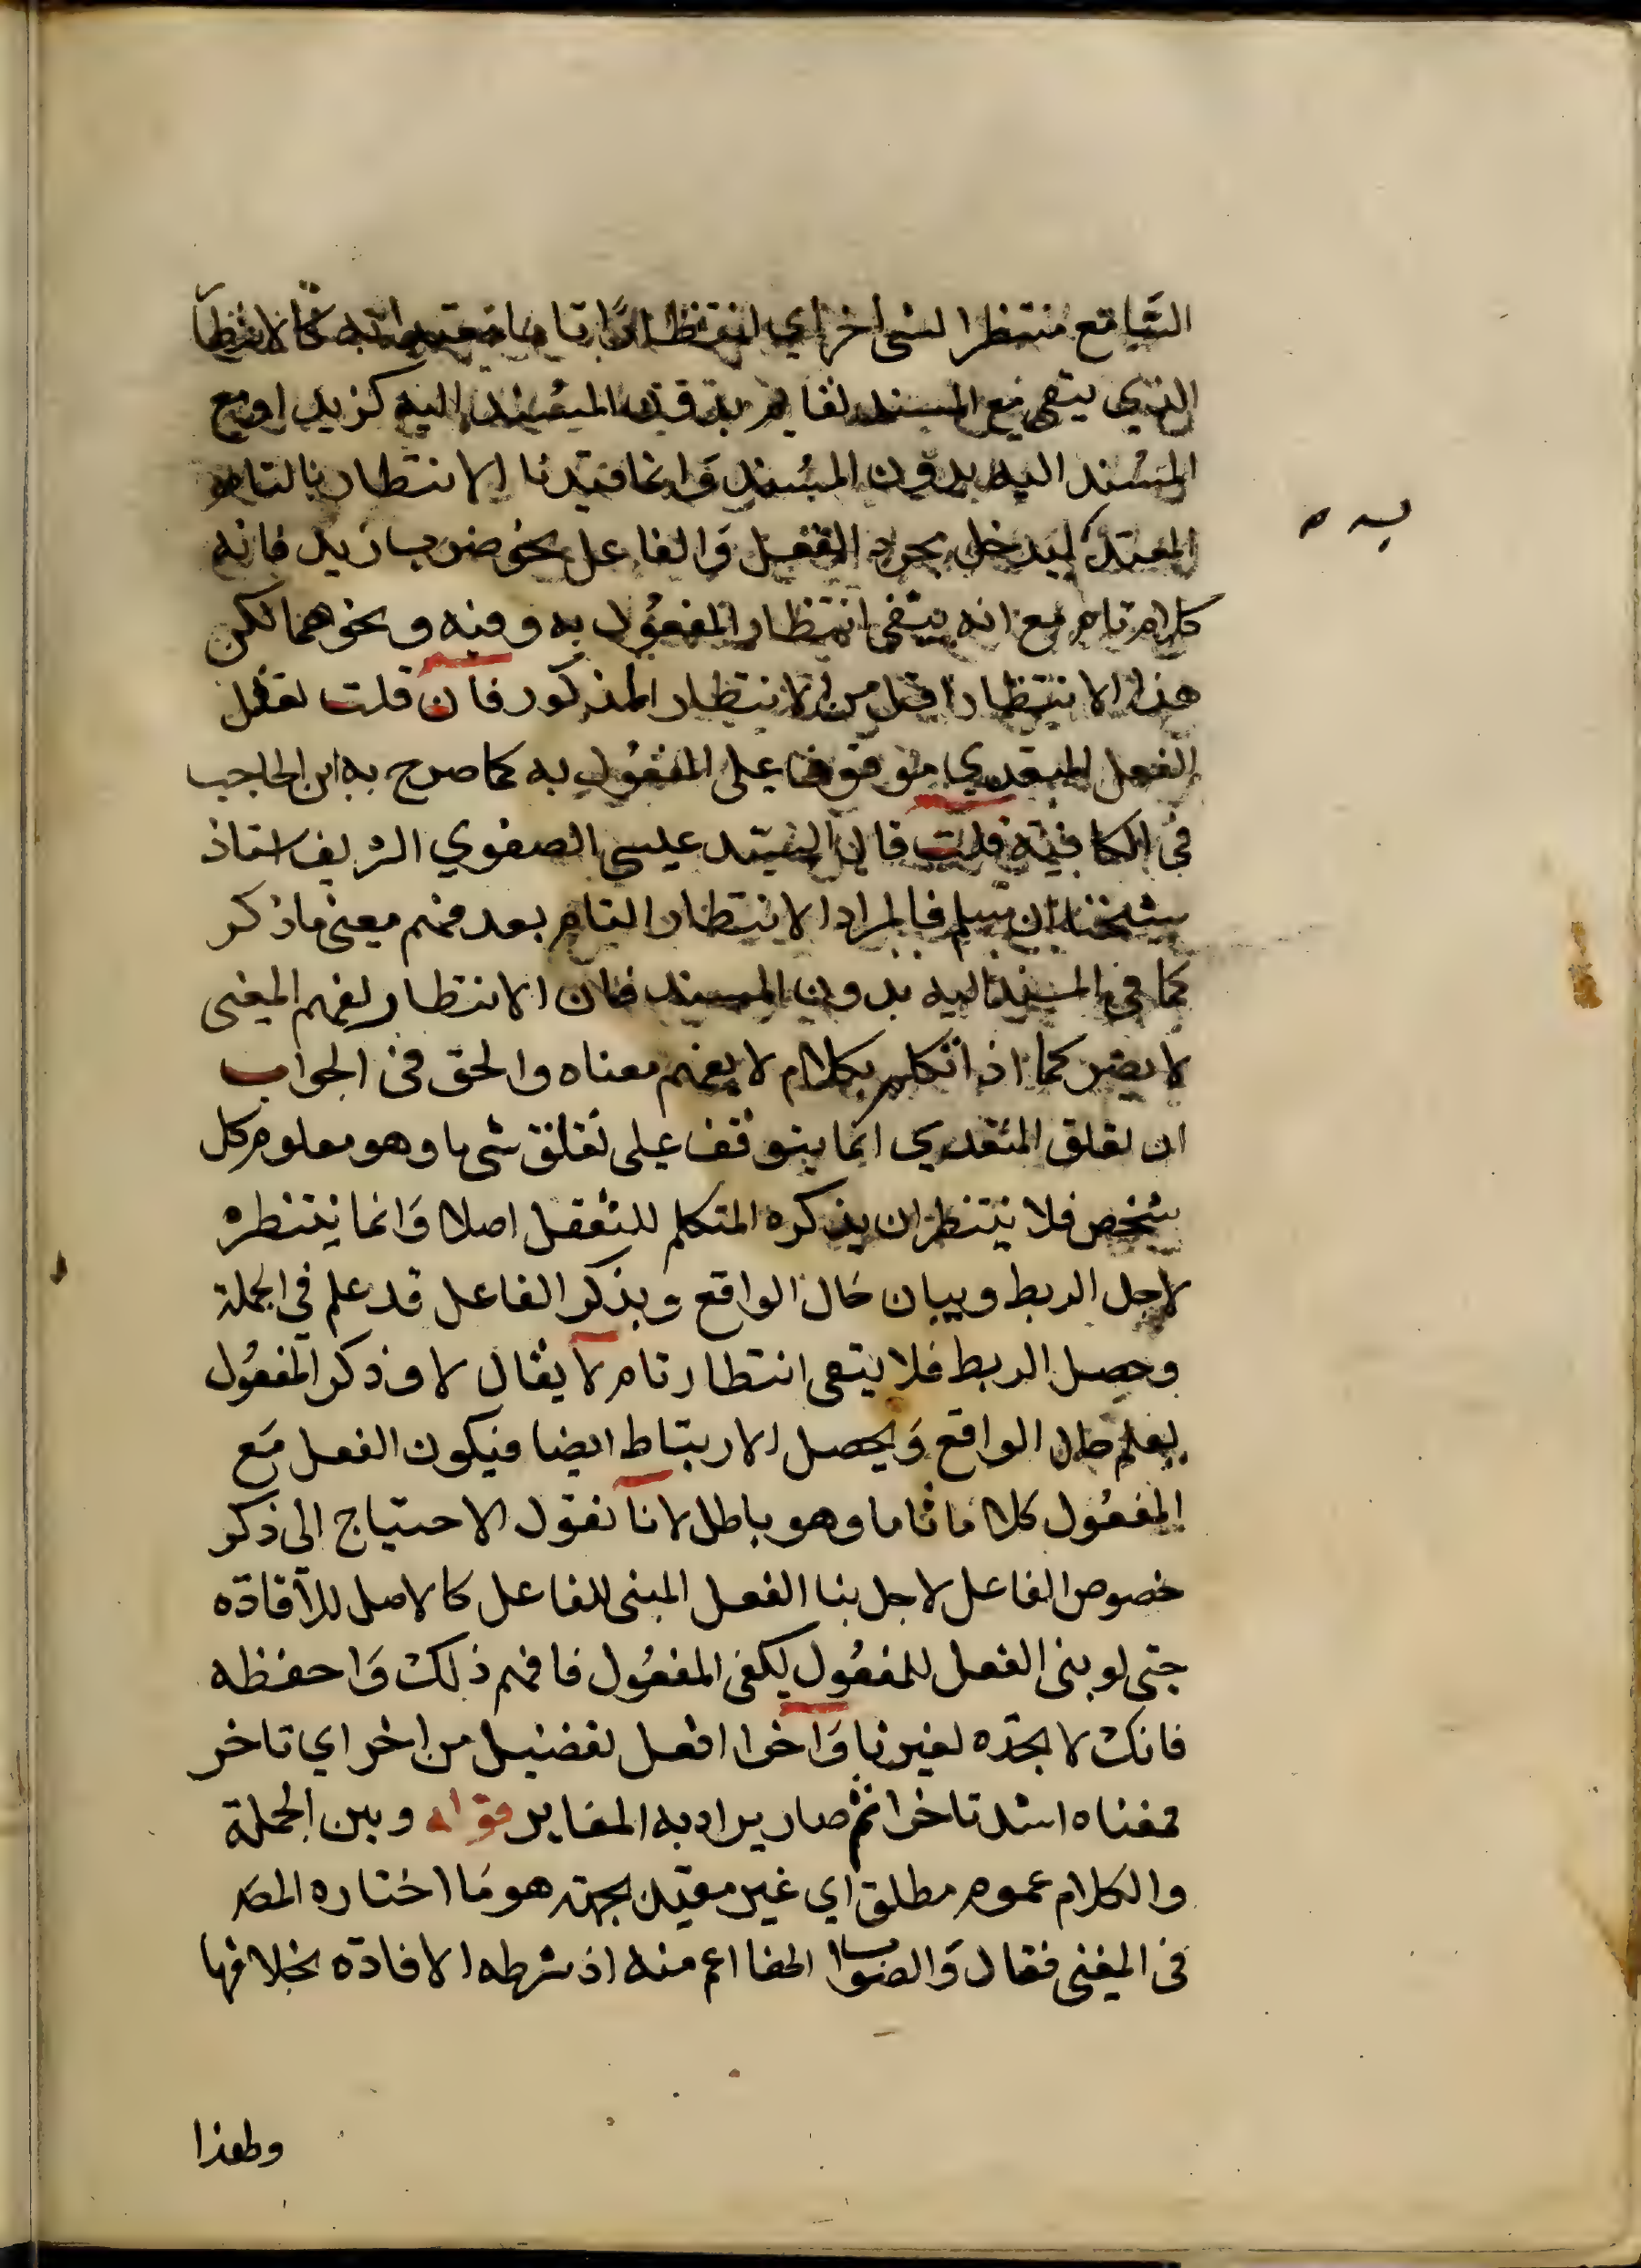 السامع منتظرا لشي اخر اي انتظارا تاما معتدا به كالانتظا
الذي يبقى مع المسند لقايم بدون المسند اليه كزيد او مع
المسند اليه بدون المسند وانما قيدنا الانتظار بالتام
المعتد ليدخل مجرد الفعل والفاعل نحو ضرب زيد فانه
كلام تام مع انه يبقى انتظار المفعول به وفيه ونحوهما لكن
هذا الانتظار اقل من الانتظار المذكور فان قلت تعقل
الفعل المتعدي موقوفا على المفعول به كما صرح به ابن الحاجب
في الكافية قلت قال السيد عيسى الصفوي الشريف استاذ
شيخنا ان سلم فالمراد الانتظار التام بعد فهم معنى ما ذكر
كما في المسند اليه بدون المسند فان الانتظار لفهم المعنى
لا يضر كما اذا تكلم بكلام لا يفهم معناه والحق في الجواب
ان تعلق المتعدي انما يتوقف على تعلق شي ما وهو معلوم كل
شخص فلا ينتظر ان يذكره المتكلم للتعقل اصلا وانما ينتظره
لاجل الربط وبيان حال الواقع وبذكر الفاعل قد علم في الجملة
وحصل الربط فلا يبقى انتظار تام لا يقال لا وذكر المفعول
يعلم حال الواقع ويحصل الارتباط ايضا فيكون الفعل مع
المفعول كلاما تاما وهو باطل لانا نقول الاحتياج الى ذكر
خصوص الفاعل لاجل بنا الفعل المبنى للفاعل كالاصل للافادة
حتى لو بنى الفعل للمفعول لكفى المفعول فافهم ذلك واحفظه
فانك لا تجده لغيرنا واخرا افعل تفضيل من اخر اي تاخر
فمعناه اشد تاخرا ثم صار يراد به المغاير قوله وبين الجملة
والكلام عموم مطلق اي غير مقيد بجهة هو ما اختاره المصـ
في المغنى فقال والصواب انها اعم منه اذ شرطه الافادة بخلافها
ولهذا